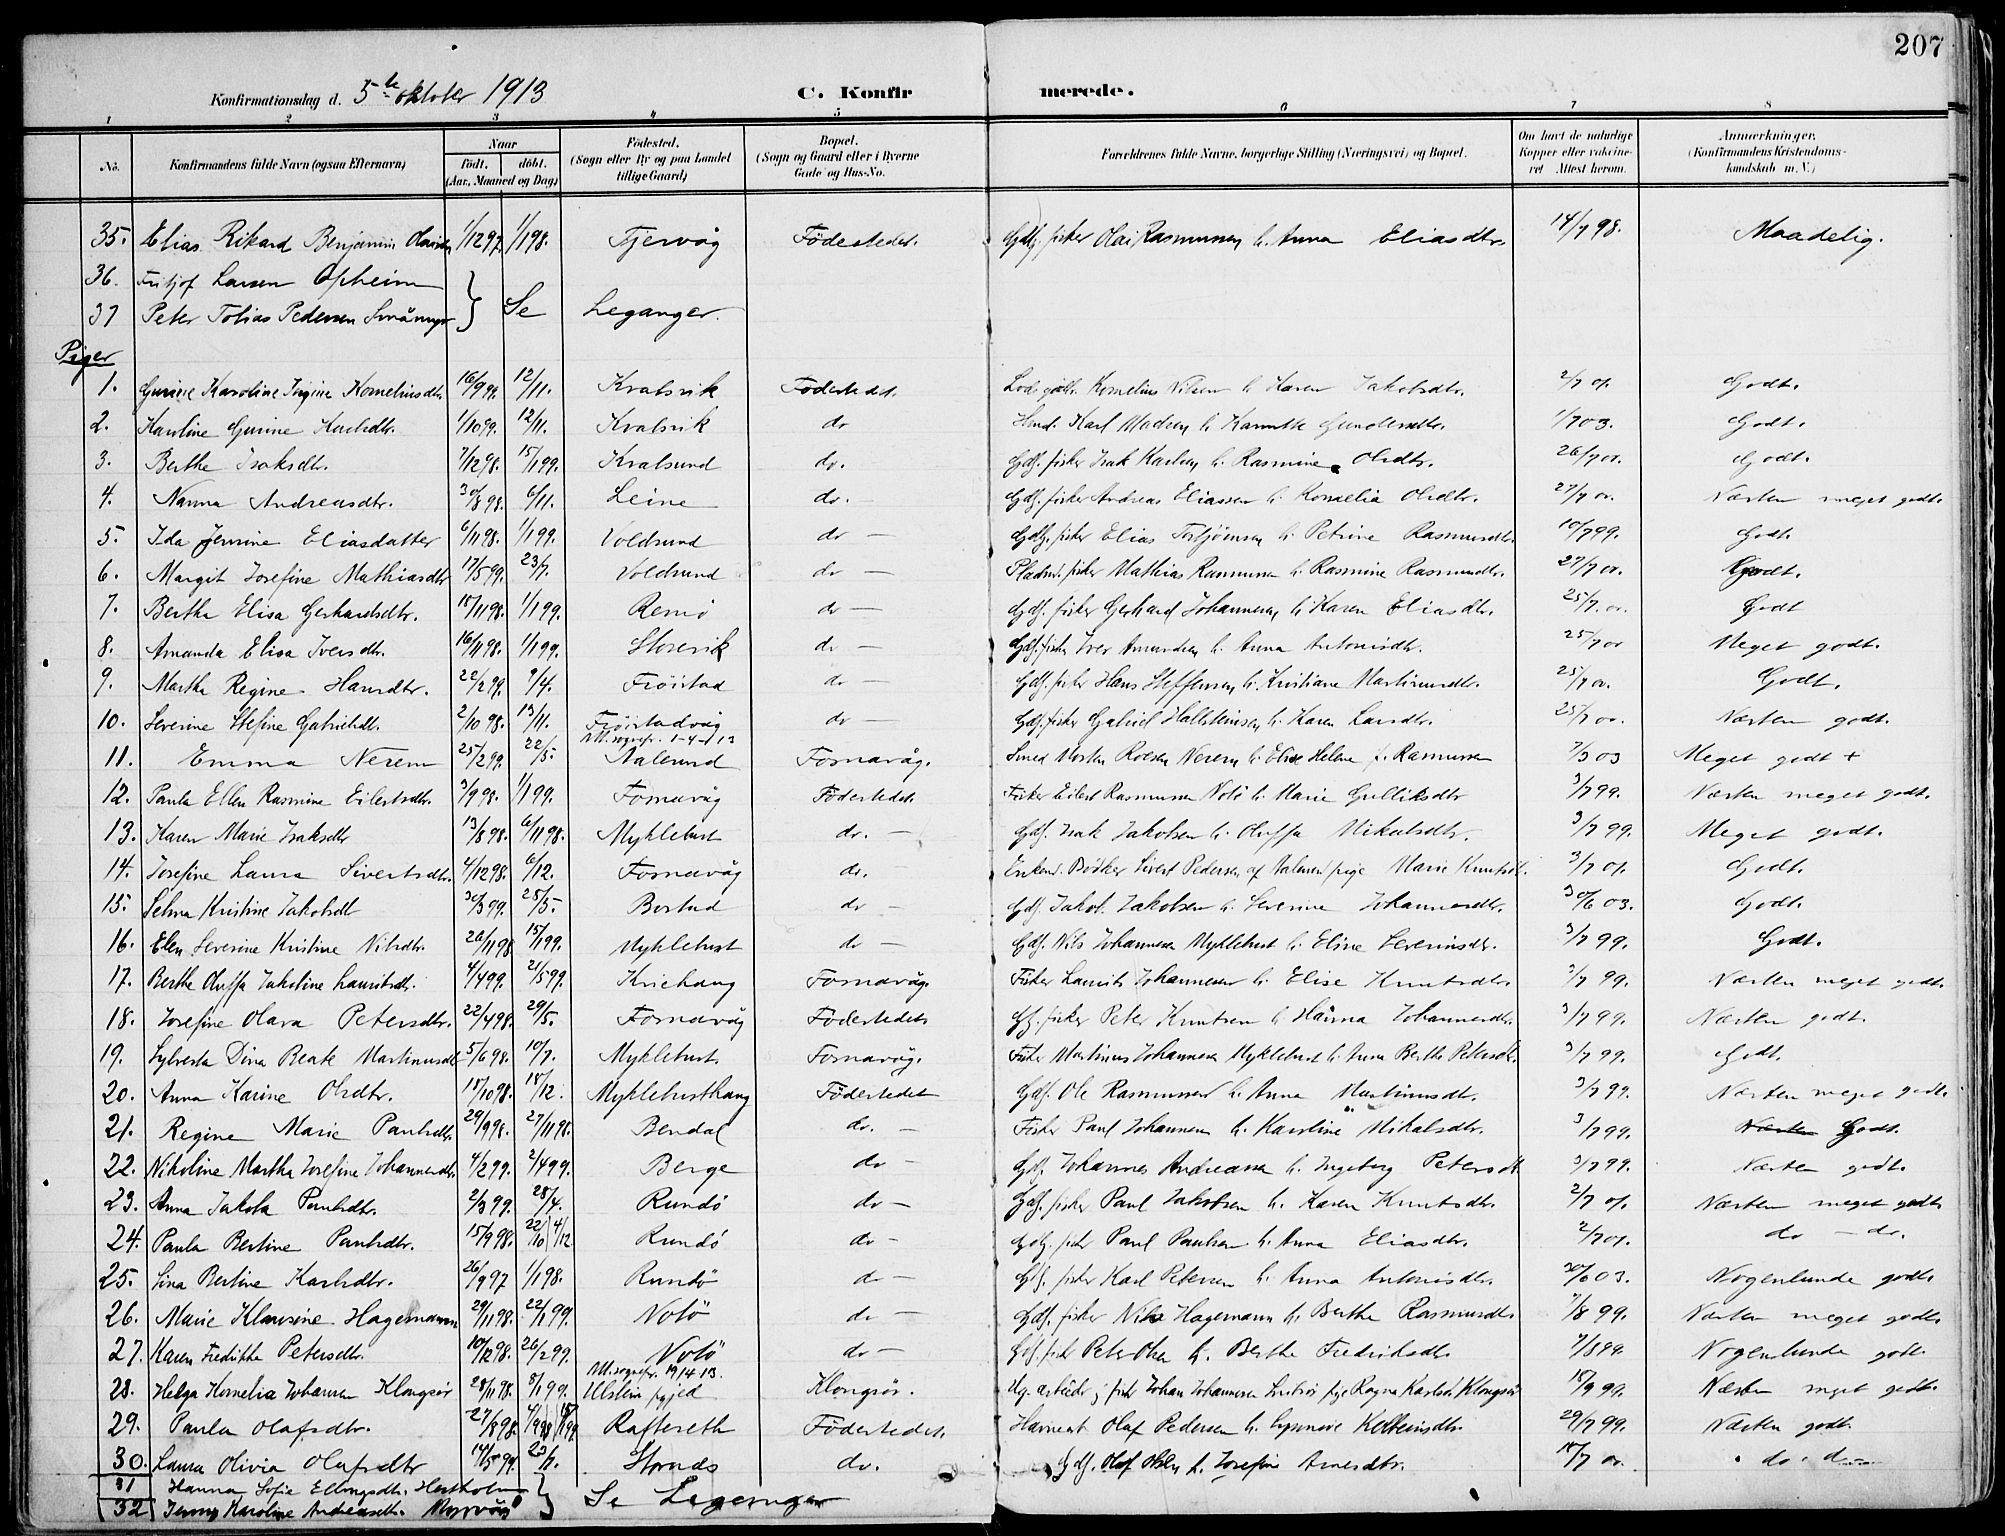 207
Konfirmationsdag d. 5te oktober 1913 C. Konfirmerede.
1 2 3 4 5 6 7 8
No. Konfirmandens fulde Navn (ogsaa Efternavn) Naar født. døbt. (Aar, Maaned og Dag) Fødested. (Sogn eller By og paa Landet tillige Gaard) Bopæl. (Sogn og Gaard eller i Byerne Gade og Hus-No. Forældrenes fulde Navne, borgerlige Stilling (Næringsvei) og Bopæl. Om havt de naturlige Kopper eller vakcineret. Attest herom. Anmærkninger. (Konfirmandens Kristendomskundskab m. V.)
35. Elias Rikard Benjamin 1/12 97. 1/1 98. Tjervåg Fødestedet. Gdf. fisker Olai Rasmussen h. Anna Eliasdtr. 14/7 98. Maadelig.
36. Fritjof Larsen Opheim
37 Peter Tobias Pedersen } Se Leganger.
Piger
1. Gurine Karoline Kornelius dtr. 16/9 99. 12/11. Kvalsvik Fødestedet. Kornelius Nilsen h. Karen Jakobsdtr. 2/7 01. Godt.
2. Karoline Gurine Karlsdtr. 1/10 99. 12/11. Kvalsvik do Karl Madsen h. 1/7 03. Godt.
3. Berthe Isaksdtr. 7/12 98. 15/1 99. Kvalsund do. Gdf. fisker Isak Karlsen h. Rasmine Olsdtr. 26/7 00. Godt.
4. Nanna Andreasdtr. 30/8 98. 6/11. Leine do. Gdf. fisker Andreas Eliassen h. Kornelia Olsdtr. 27/7 00. Næsten meget godt.
5. Ida Jensine Eliasdatter 6/11 98. 1/1 99. Voldsund do — Gdf. fisker Elias h. Petrine Rasmusdtr. 10/7 99. Godt.
6. Margit Josefine Mathiasdtr 17/5 99. 23/7. Voldsund do — Pladsm. fisker Mathias Rasmussen h. Rasmine Rasmusdtr. 27/7 00. Godt.
7. Berthe Elisa Gerhardsdtr. 15/11 98. 1/1 99. Remø do — Gdf. fisker Gerhard Johannesen h. Karen Eliasdtr. 25/7. 00. Godt
8. Amanda Elisa Iversdtr. 16/11 98. 1/1 99. Storevik do — Gdf. fisker Iver Amundsen h. Anna Antonisdtr. 25/7 00 Meget godt.
9. Martha Regine Hansdtr. 22/2 99. 9/4. Frøistad do — Gdf. fisker Hans Steffensen h. Kristiane Martinusdtr. 25/7 00. Godt.
10. Severine Stefine Gabrielsdtr. 2/10 98. 13/11. Frøistadvåg do — Gdf. fisker Gabriel Hallsteinsen h. Karen Larsdtr. 25/7 00. Næsten godt.
11. Emma Nerem 25/2 99. 22/5. Nalsund Fosnavåg. Smed Morten Nerem h. Elise Helene f. Rasmussen 7/3 03 Meget godt +
12. Paula Ellen Rasmine Eilertsdtr. 3/9 98. 1/1 99. Fosnavåg Fødestedet. Fisker Eilert Rasmussen h. Marie Gulliksdtr 3/7 99. Næsten meget godt.
13. Karen Marie Isaksdtr 13/8 98. 6/11 98. Myklebust do. — Gdf. Isak Jakobsen h. Oluffa Nikolsdtr. 3/7 99. Meget godt.
14. Josefine Laura Sivertsdtr. 4/12 98. 6/12. Fosnavåg do. Enkem. Bødker Sivert Pedersen og pige Marie Knutsdtr. 3/7 01. Godt.
15. Selma Kristine Jakobsdtr 30/3 99. 28/5 Borlad do — Gdf. Jakob Jakobsen h. Severine Johannesdtr. 30/6 03. Godt.
16. Elen Severine Kristine Nilsdtr. 26/11 98. 15/1 99. Myklebust do — Gdf. Nils Johannesen Myklebust h. Eline Severinsdtr. 3/7 99. Godt.
17. Berthe Oluffa Jakobine Lauritsdtr. 4/4 99. 21/5 99. Fosnavåg. Fisker Laurits Johannesen h. Elise Knutsdtr. 3/7 99. Næsten meget godt
18. Josefine Olava Petersdtr. 22/4 98. 29/5. Fosnavåg Fødestedet Gf. fisker Peter Knutsen h Hanna Johannesdtr. 3/7 99. Næsten godt.
19. Sylvesta Dina Beate Martinusdtr 5/6 98. 10/7. Myklebust. Fosnavåg. Fisker Martinus Johannesen Myklebust h. Anna Berthe Petersdtr. 3/7 99. Godt.
20. Anna Karine Olsdtr. 15/10 98. 18/12. Myklebusthaug Fødestedet Gdf. Ole Rasmussen h. Anna Martinusdtr. 3/7 99. Næsten meget godt.
21. Regine Marie Paulsdtr. 29/9 98. 27/11 98. Bendal do. — Fisker Paul Johannesen h. Karoline Nikolsdtr. 3/7 99. Næsten Godt.
22. Nikoline Martha Josefine Johannesdtr. 4/2 99. 2/4 99. Berge do Gdf. Johannes Andreassen h. Ingeborg Petersdtr 3/7 99. Næsten godt.
23. Anna Jakoba Paulsdtr. 2/3 99. 28/4. Rundø do — Gdf. fisker Paul Jakobsen h. Karen Knutsdtr. 2/7 01. Næsten meget godt
24. Paula Bertine Paulsdtr. 15/9 98. 22/10 4/12 Rundø do — Gdf. fisker Paul Paulsen h. Anna Eliasdtr. 2/7 01. do — do.
25. Lina Bertine Karlsdtr. 26/9 97 1/1 98. Rundø do — Gdf. fisker Karl Petersen h. Anna Antonisdtr. 30/6 03. Nogenlunde godt
26. Marie Klausine Hagemann 29/11 98. 22/1 99. Notø do — Gdf. fisker Nils Hagemann h. Berthe Rasmusdtr 7/8 99. Næsten meget godt.
27. Karen Fredrikke Petersdtr. 10/12 98. 26/2 99. Notø do — Gdf. fisker Peter Olsen h. Berthe Fredriksdtr. 7/8 99. Nogenlunde godt.
28. Helga Kornelia Johansen Klongsør 28/11 98. 8/1 99. Ulstein Klongsør. Johan Johannesen pige Ragna Karlsd. Klongsør 15/9 99. Næsten meget godt.
29. Paula Olafsdtr. 27/8 98. Rafteseth Fødestedet. Olaf Pedersen h. 29/7 99. Næsten godt.
30. Laura Olivia Olafsdtr 14/5 99. 23/7. Stornes do. Gdf. Olaf Olsen h. Josefine Arnesdtr. 15/7 00. do. do
31 Hanna Sofie Ellingsdtr.
32 Jenny Karoline Andreasdtr. Myrvåg } Se Leganger